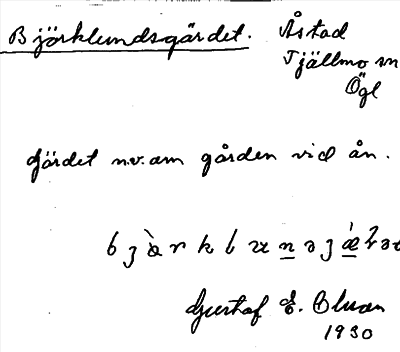 Björklundsgärdet. Åstad
Tjällmo sn
Ögl
Gärdet n.v. om gården vid ån.
Gustaf E. Bluan
1930